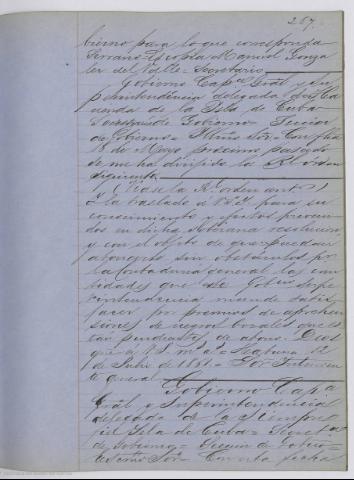 267.
bierno para lo que corresponda
Serrano = Es copia Manuel Gonza
lez del Valle = Secretario
Gobierno Cap.ª Gral. y Su
perintendencia delegada de Ha
cienda de la Isla de Cuba
Secretaría de Gobierno = Sección
de Gobierno = Illmo Sor = Con fha
18 de Mayo próximo pasado
se me ha dirigido la Rl. orden
siguiente
Vista la Rl. orden ant.
la traslado á V.S.I. para su
conocimiento y efectos preveni
dos en dicha soberana resolucion
y con el objeto de que puedan
abonarse sin obstáculos p.r
la Contaduria general las can
tidades que este Gobierno Supe
rintendencia mande satis
facer por premios de aprehen
siones de negros bozales que es
tán pendientes de abono. Dios
gue á V.S. m.s a.s Habana 12
de Julio de 1861 = Sor Intenden
te general
Gobierno Cap.ª
Gral. y Superintendencia
delegada de la Siempre
fiel Isla de Cuba = Secret.ª
de Gobierno = Sección de Gobierno
Exmo Sor = Con esta fecha